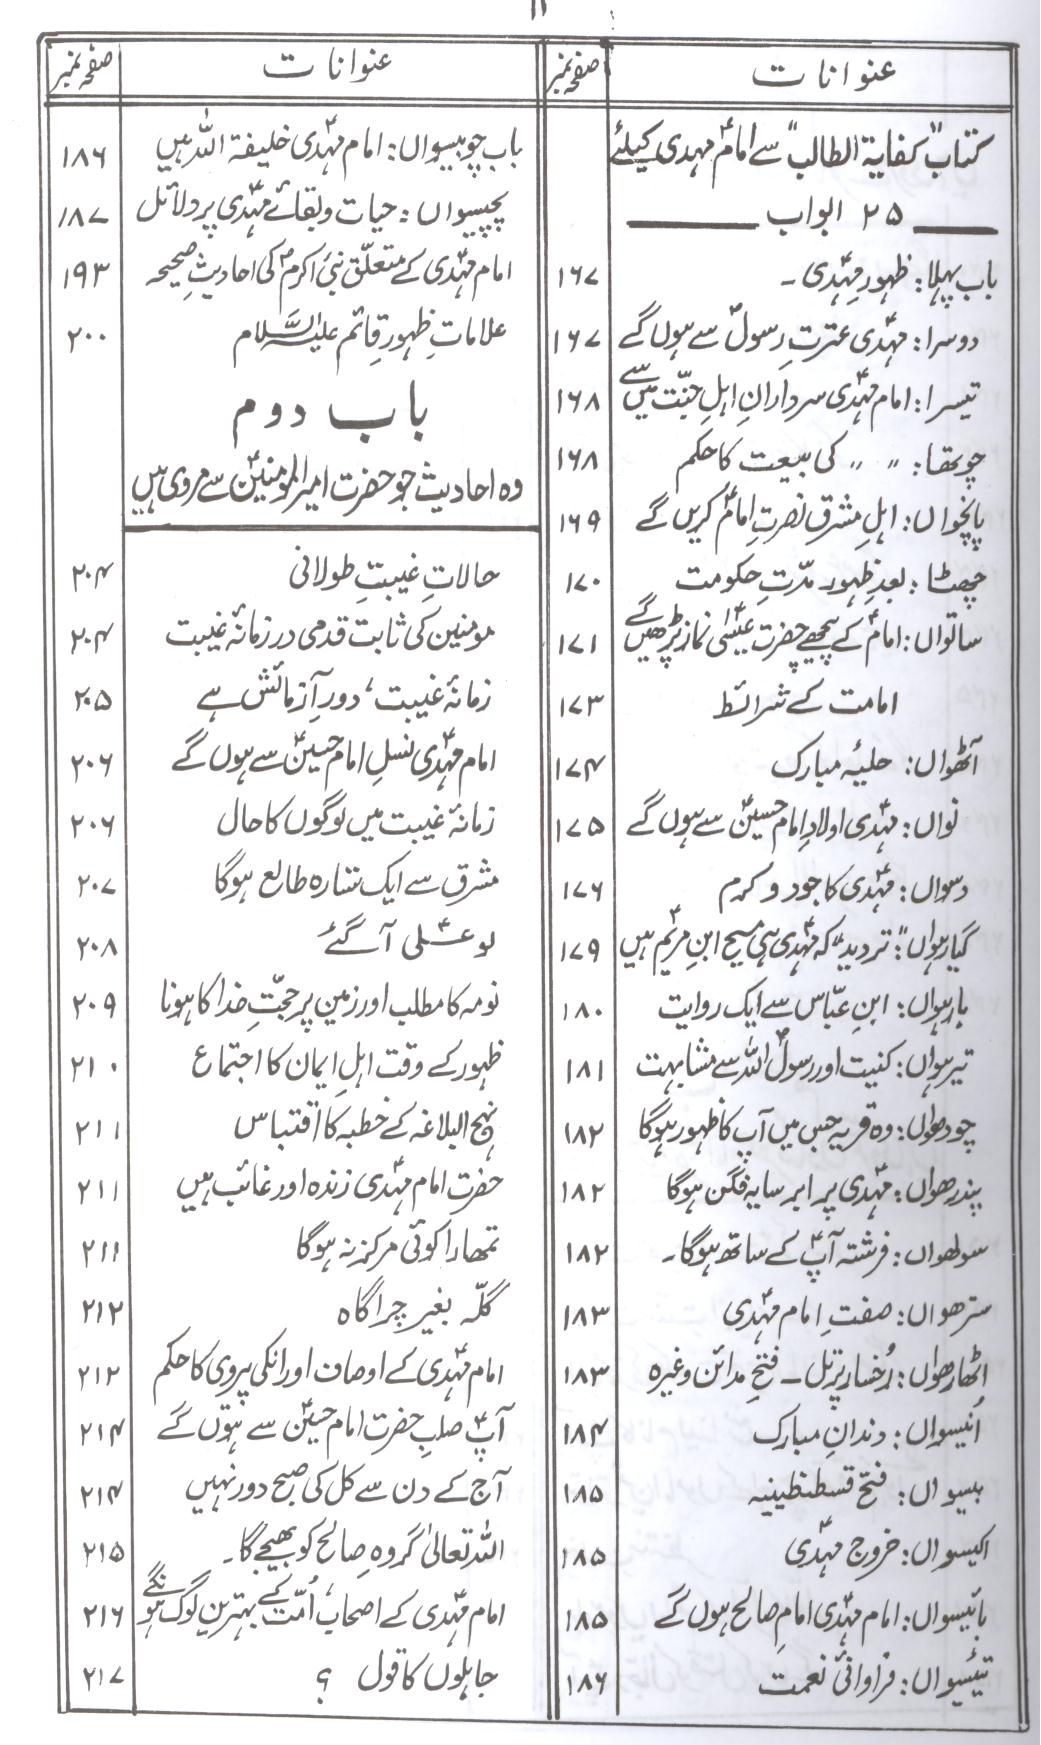 ۱۱
عنوانات صفحہ نمبر
کتاب "کفایۃ الطالب" سے امامؑ مہدی کیلئے
۲۵ ابواب
باب پہلا: ظہورِ مہدیؑ۔ ۱۶۷
دوسرا: مہدیؑ عترتِ رسولؐ سے ہوں گے ۱۶۷
تیسرا: امام مہدیؑ سردارانِ اہلِ جنّت میں سے ۱۶۸
چوتھا: 〃 〃 کی بیعت کا حکم ۱۶۸
پانچواں: اہلِ مشرق نصرتِ امامؑ کریں گے ۱۶۹
چھٹا: بعدِ ظہور مدّتِ حکومت ۱۷۰
ساتواں: امامؑ کے پیچھے حضرت عیسٰیؑ نماز پڑھیں گے ۱۷۱
امامت کے شرائط ۱۷۳
آٹھواں: حلیۂ مبارک ۱۷۴
نواں: مہدیؑ اولادِ امام حسینؑ سے ہوں گے ۱۷۵
دسواں: مہدیؑ کا جود و کرم ۱۷۶
گیارہواں: "تردید" کہ مہدیؑ ہی مسیح ابنِ مریمؑ ہیں ۱۷۹
بارہواں: ابنِ عبّاس سے ایک روایت ۱۸۰
تیرہواں: کنیت اور رسولؐ اللہ سے مشابہت ۱۸۱
چودھواں: وہ قریہ جس میں آپ کا ظہور ہوگا ۱۸۲
پندرھواں: مہدیؑ پر ابر سایہ فگن ہوگا ۱۸۲
سولھواں: فرشتہ آپؑ کے ساتھ ہوگا۔ ۱۸۲
سترھواں: صفتِ امام مہدیؑ ۱۸۳
اٹھارھواں: رُخسار پر تل۔ فتحِ مدائن وغیرہ ۱۸۳
اُنیسواں: دندانِ مبارک ۱۸۴
بیسواں: فتح قسطنطینیہ ۱۸۵
اکیسواں: خروجِ مہدیؑ ۱۸۵
بائیسواں: امام مہدیؑ امامِ صالح ہوں گے ۱۸۵
تیئیسواں: فراوانیٔ نعمت ۱۸۶
عنوانات صفحہ نمبر
باب چوبیسواں: امام مہدیؑ خلیفۃ اللہ ہیں ۱۸۶
پچیسواں: حیات و بقائے مہدیؑ پر دلائل ۱۸۷
امام مہدیؑ کے متعلّق نبیٔ اکرمؐ کی احادیثِ صحیحہ ۱۹۳
علاماتِ ظہورِ قائم علیہ السّلام ۲۰۰
باب دوم
وہ احادیث جو حضرت امیر المومنینؑ سے مروی ہیں
حالاتِ غیبتِ طولانی ۲۰۴
مومنین کی ثابت قدمی در زمانۂ غیبت ۲۰۴
زمانۂ غیبت، دورِ آزمائش ہے ۲۰۵
امام مہدیؑ نسلِ امام حسینؑ سے ہوں گے ۲۰۶
زمانۂ غیبت میں لوگوں کا حال ۲۰۶
مشرق سے ایک ستارہ طالع ہوگا ۲۰۷
لو علیؑ آگئے ۲۰۸
نومہ کا مطلب اور زمین پر حجّتِ خدا کا ہونا ۲۰۹
ظہور کے وقت اہلِ ایمان کا اجتماع ۲۱۰
نہج البلاغہ کے خطبہ کا اقتباس ۲۱۱
حضرت امام مہدیؑ زندہ اور غائب ہیں ۲۱۱
تمھارا کوئی مرکز نہ ہوگا ۲۱۱
گلّہ بغیر چراگاہ ۲۱۲
امام مہدیؑ کے اوصاف اور انکی پیروی کا حکم ۲۱۲
آپؑ صلبِ حضرت امام حسینؑ سے ہوں گے ۲۱۴
آج کے دن سے کل کی صبح دور نہیں ۲۱۴
اللہ تعالیٰ گروہِ صالح کو بھیجے گا۔ ۲۱۵
امام مہدیؑ کے اصحاب، اُمّت کے بہترین لوگ ہونگے ۲۱۶
جاہلوں کا قول ؟ ۲۱۷